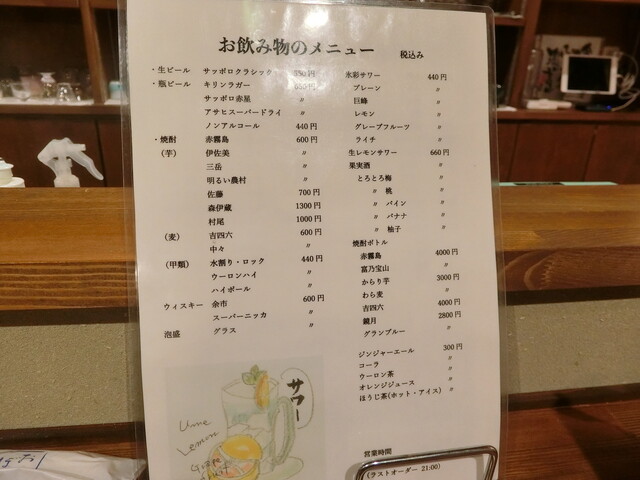 お飲み物のメニュー 税込み
・生ビール サッポロクラシック 550円
・瓶ビール キリンラガー 650円
サッポロ赤星 〃
アサヒスーパードライ 〃
ノンアルコール 440円
・焼酎 赤霧島 600円
(芋) 伊佐美 〃
三岳 〃
明るい農村 〃
佐藤 700円
森伊蔵 1300円
村尾 1000円
(麦) 吉四六 600円
中々 〃
(甲類) 水割り・ロック 440円
ウーロンハイ 〃
ハイボール 〃
ウィスキー 余市 600円
スーパーニッカ 〃
泡盛 グラス 〃
氷彩サワー 440円
プレーン 〃
巨峰 〃
レモン 〃
グレープフルーツ 〃
ライチ 〃
生レモンサワー 660円
果実酒 〃
とろとろ梅 〃
〃 桃 〃
〃 パイン 〃
〃 バナナ 〃
〃 柚子 〃
焼酎ボトル
赤霧島 4000円
富乃宝山 〃
からり芋 3000円
わら麦 〃
吉四六 4000円
鏡月 2800円
グランブルー 〃
ジンジャーエール 300円
コーラ 〃
ウーロン茶 〃
オレンジジュース 〃
ほうじ茶(ホット・アイス) 〃
サワー
Ume
Lemon
営業時間
(ラストオーダー 21:00)